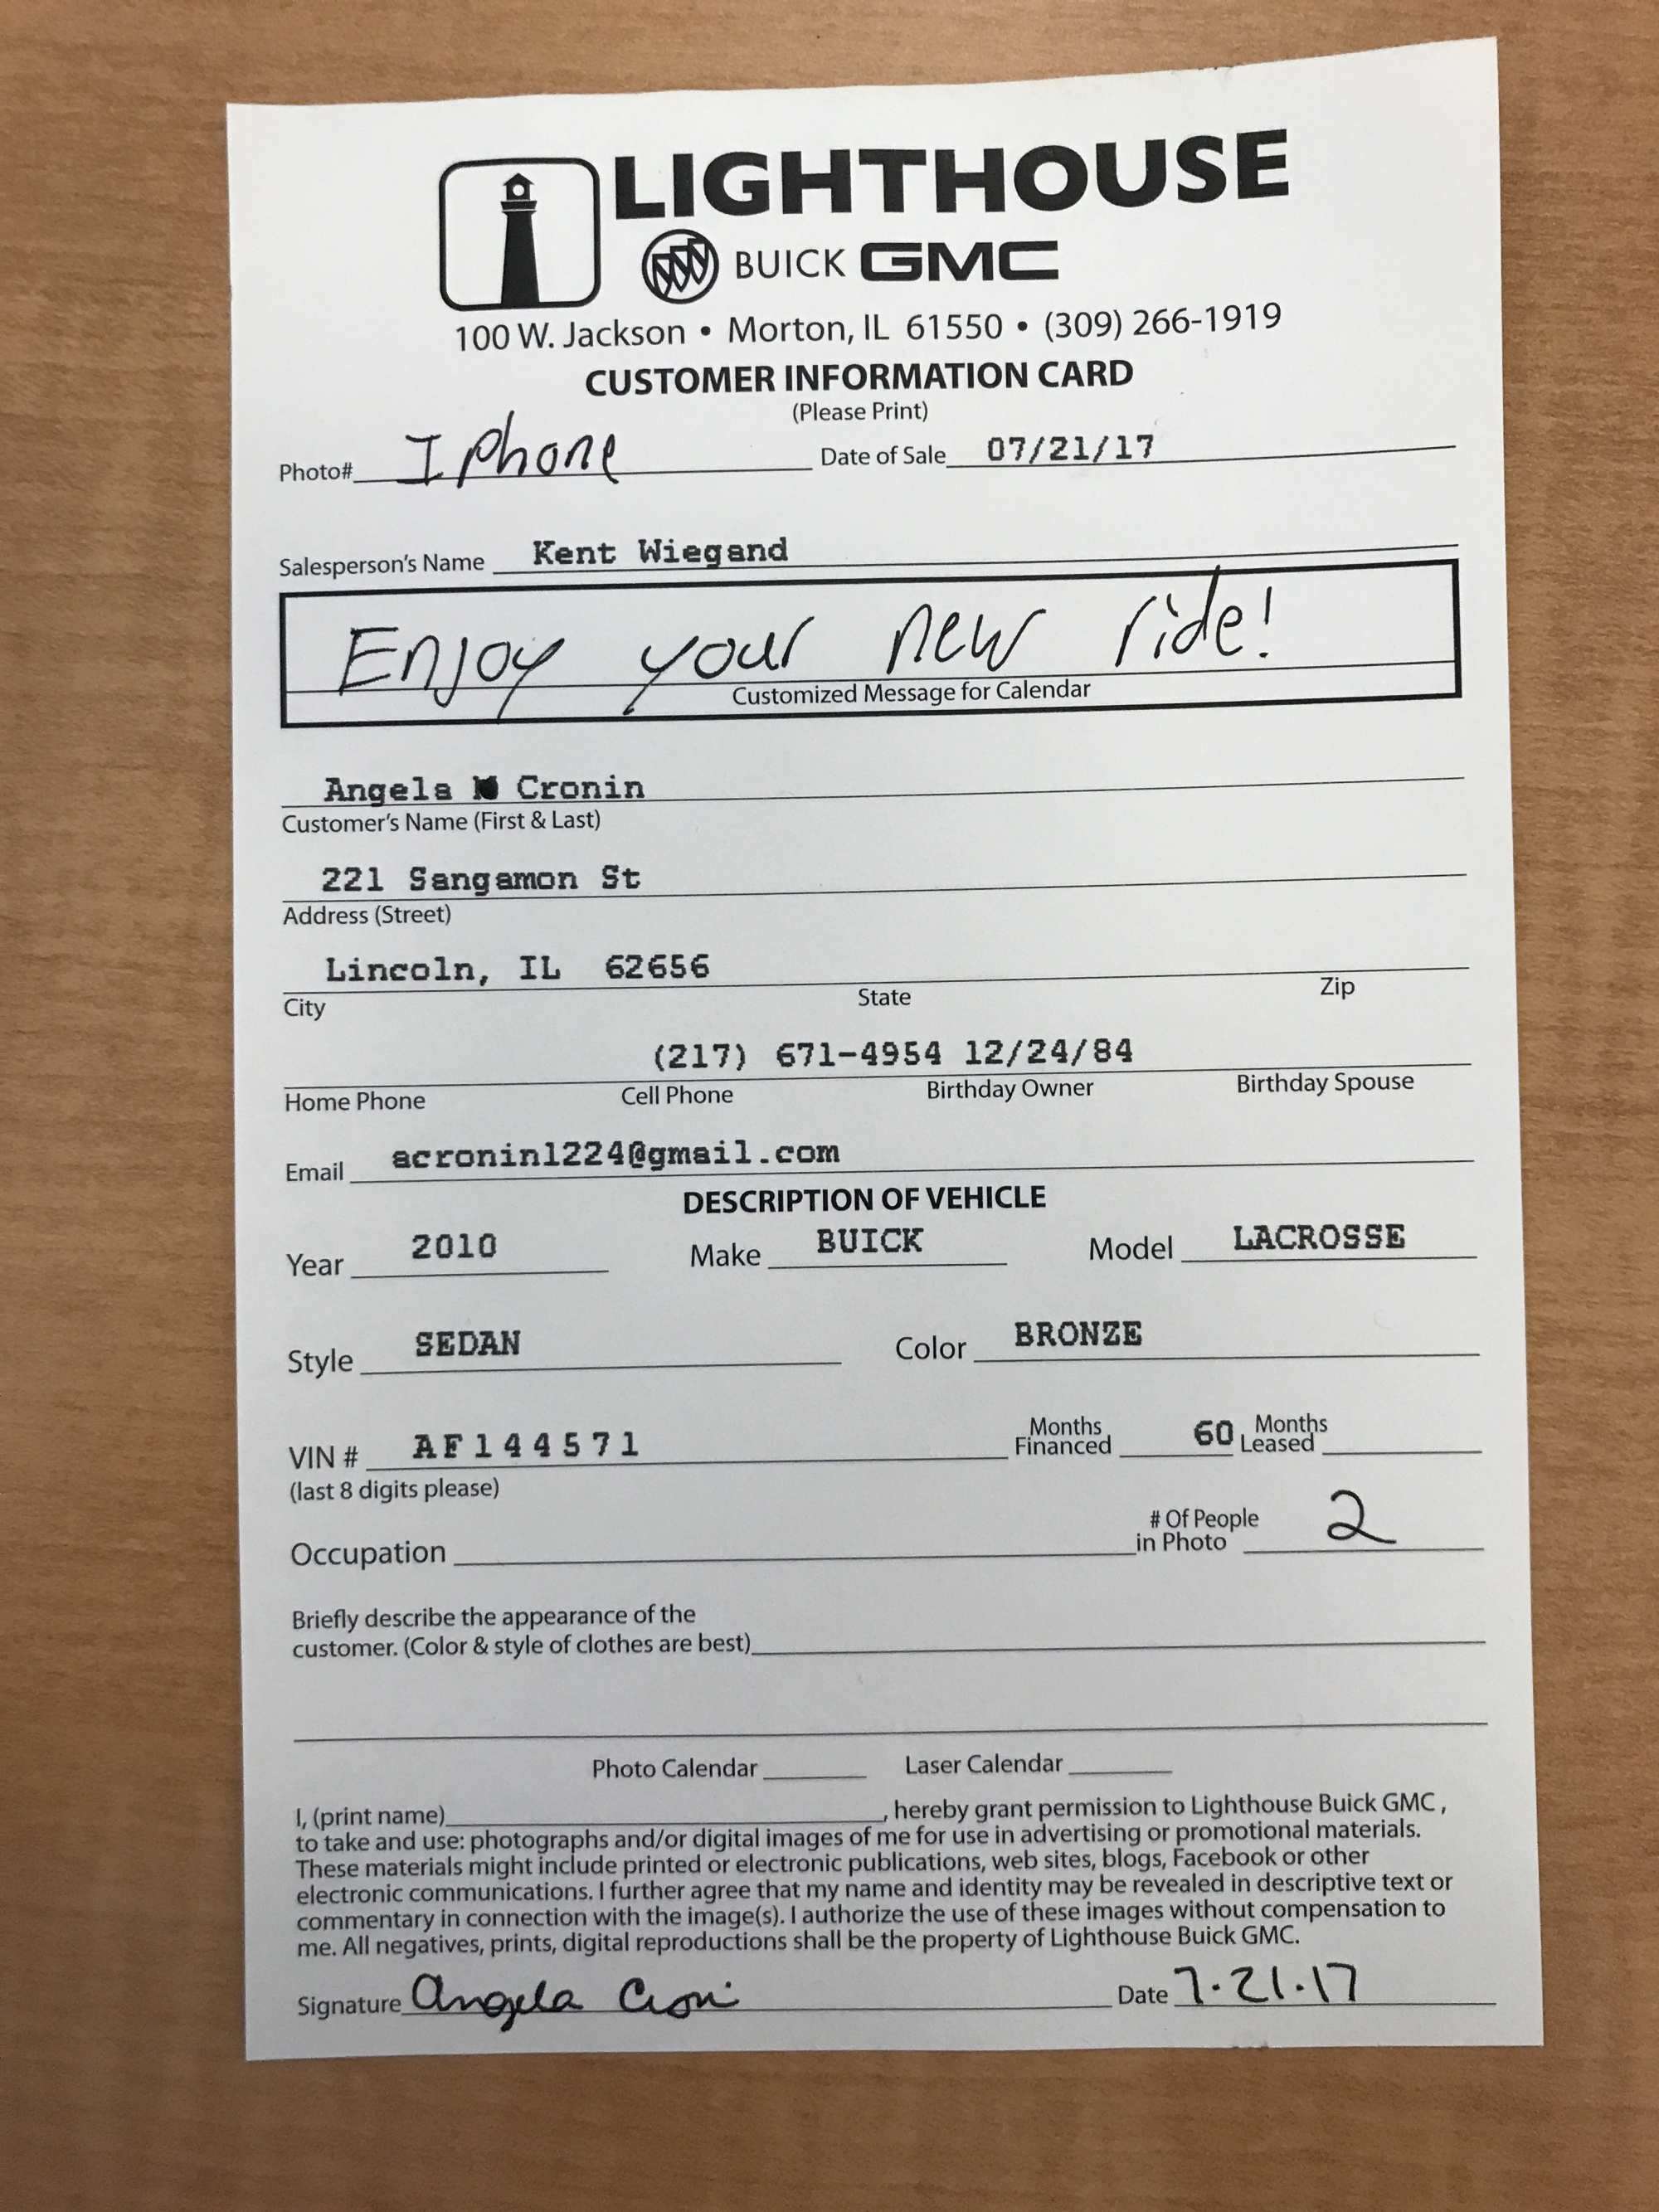 LIGHTHOUSE
BUICK GMC
100 W. Jackson • Morton, IL 61550 • (309) 266-1919
CUSTOMER INFORMATION CARD
(Please Print)
Photo# I phone Date of Sale 07/21/17
Salesperson's Name Kent Wiegand
Enjoy your new ride!
Customized Message for Calendar
Angela Cronin
Customer's Name (First & Last)
221 Sangamon St
Address (Street)
Lincoln, IL 62656
City State Zip
(217) 671-4954 12/24/84
Home Phone Cell Phone Birthday Owner Birthday Spouse
Email acronin1224@gmail.com
DESCRIPTION OF VEHICLE
Year 2010 Make BUICK Model LACROSSE
Style SEDAN Color BRONZE
VIN # AF144571 Months Financed 60 Months Leased
(last 8 digits please)
Occupation # Of People in Photo 2
Briefly describe the appearance of the
customer. (Color & style of clothes are best)
Photo Calendar Laser Calendar
I, (print name) , hereby grant permission to Lighthouse Buick GMC ,
to take and use: photographs and/or digital images of me for use in advertising or promotional materials.
These materials might include printed or electronic publications, web sites, blogs, Facebook or other
electronic communications. I further agree that my name and identity may be revealed in descriptive text or
commentary in connection with the image(s). I authorize the use of these images without compensation to
me. All negatives, prints, digital reproductions shall be the property of Lighthouse Buick GMC.
Signature Angela Cronin Date 7.21.17